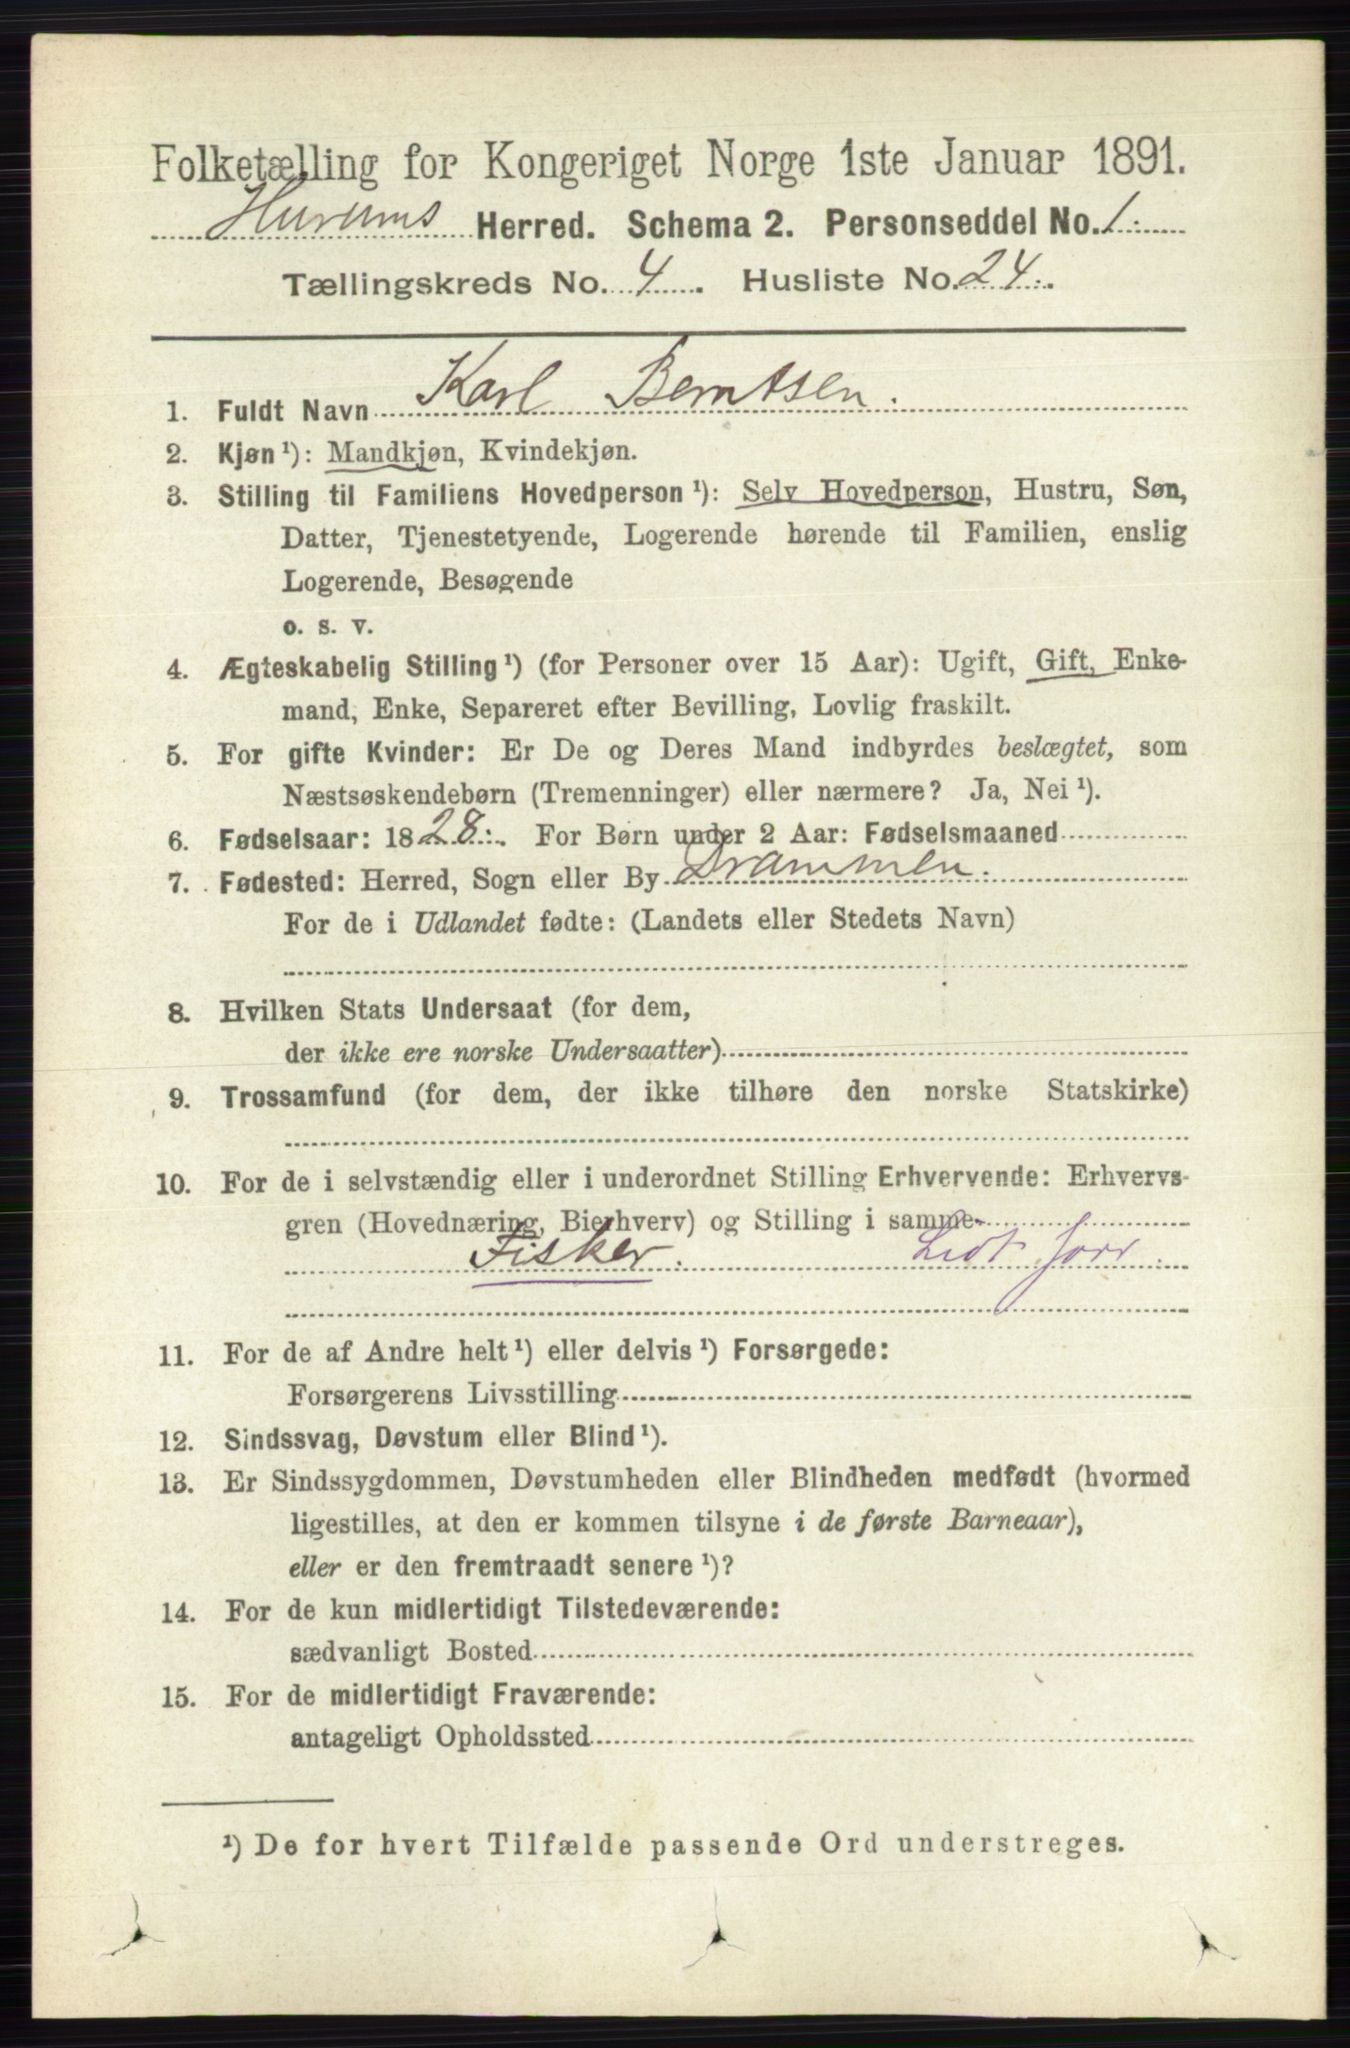 Folketælling for Kongeriget Norge 1ste Januar 1891.
Hurums Herred. Schema 2. Personseddel No. 1.
Tællingskreds No. 4. Husliste No. 24.
1. Fuldt Navn Karl Berntsen.
2. Kjøn¹): Mandkjøn, Kvindekjøn.
3. Stilling til Familiens Hovedperson¹): Selv Hovedperson, Hustru, Søn,
Datter, Tjenestetyende, Logerende hørende til Familien, enslig
Logerende, Besøgende
o. s. v.
4. Ægteskabelig Stilling¹) (for Personer over 15 Aar): Ugift, Gift, Enke-
mand, Enke, Separeret efter Bevilling, Lovlig fraskilt.
5. For gifte Kvinder: Er De og Deres Mand indbyrdes beslægtet, som
Næstsøskendebørn (Tremenninger) eller nærmere? Ja, Nei¹).
6. Fødselsaar: 1828. For Børn under 2 Aar: Fødselsmaaned
7. Fødested: Herred, Sogn eller By Drammen.
For de i Udlandet fødte: (Landets eller Stedets Navn)
8. Hvilken Stats Undersaat (for dem,
der ikke ere norske Undersaatter)
9. Trossamfund (for dem, der ikke tilhøre den norske Statskirke)
10. For de i selvstændig eller i underordnet Stilling Erhvervende: Erhvervs-
gren (Hovednæring, Bierhverv) og Stilling i samme
Fisker. Lidt Jord.
11. For de af Andre helt¹) eller delvis¹) Forsørgede:
Forsørgerens Livsstilling
12. Sindssvag, Døvstum eller Blind¹).
13. Er Sindssygdommen, Døvstumheden eller Blindheden medfødt (hvormed
ligestilles, at den er kommen tilsyne i de første Barneaar),
eller er den fremtraadt senere¹)?
14. For de kun midlertidigt Tilstedeværende:
sædvanligt Bosted
15. For de midlertidigt Fraværende:
antageligt Opholdssted
¹) De for hvert Tilfælde passende Ord understreges.